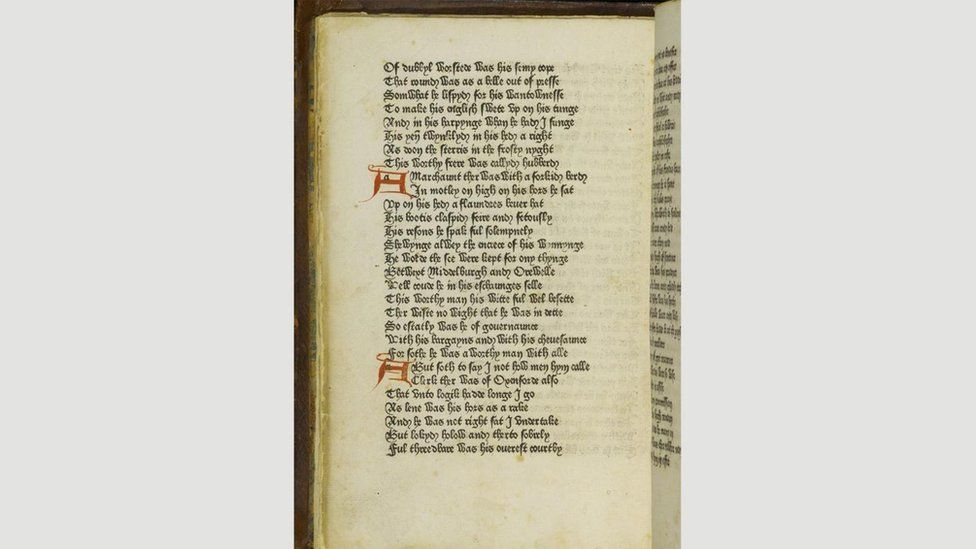 Of dubbyl worstede was his semy cope
That roundy was as a belle out of presse
Somwhat he lispydy for his wantownesse
To make his english swete vp on his tunge
Andy in his harpynge whan he hady I sunge
His yen twynklydy in his hedy a right
As doon the sterris in the frosty nyght
This worthy frere was callydy hubberdy
A Marchaunt ther was with a forkidy berdy
In motley on high on his hors he sat
Vp on his hedy a flaundres beuer hat
His bootis claspidy feire andy fetously
His resons he spak ful solempnely
Shewynge alwey the encrece of his wynnynge
He wolde the see were kept for ony thynge
Betwext Middelburgh andy Orewelle
Well coude he in his eschaunges selle
This worthy man his witte ful wel besette
Ther wiste no wight that he was in dette
So estatly was he of gouernaunce
With his bargayns andy with his cheuesaunce
For sothe he was a worthy man with alle
But soth to say I not how men hym calle
A Clerk ther was of Oxenforde also
That vnto logik hadde longe I go
As lene was his hors as a rake
Andy he was not right fat I vndertake
But lokydy holow andy therto sobirly
Ful threedbare was his ouerest courtby